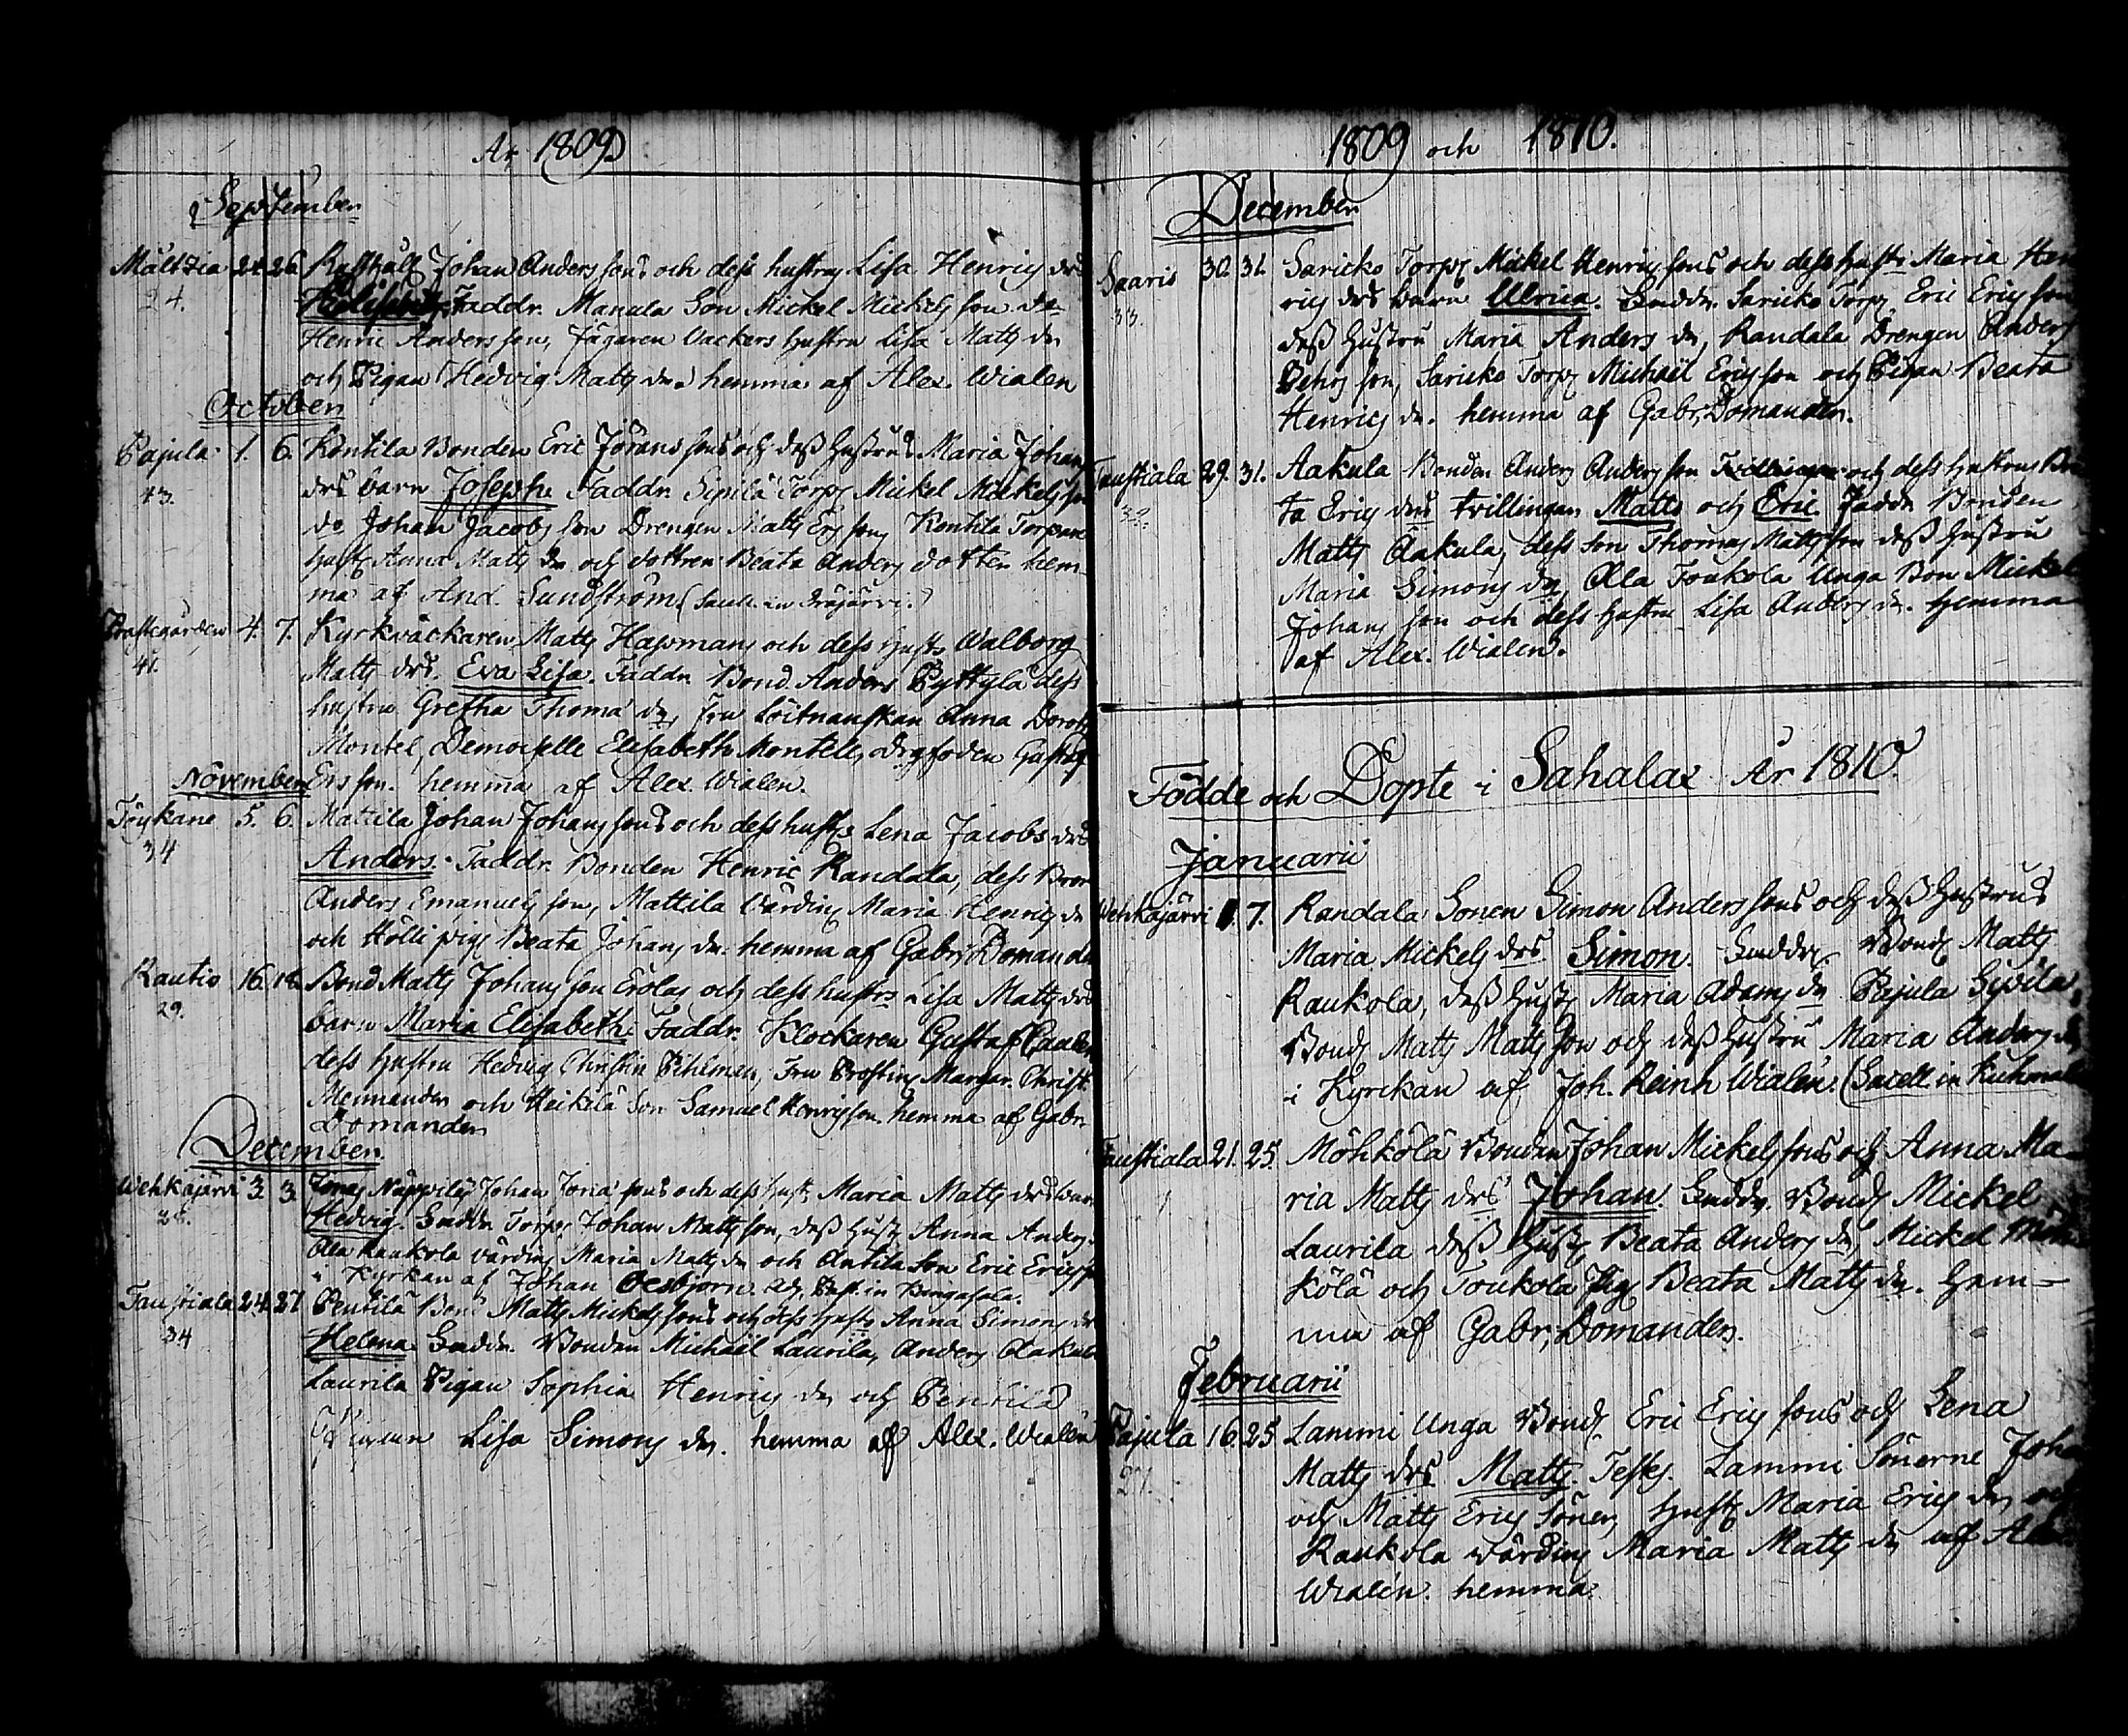 År 1809
September
Mältzia 24. 26. Rusthåll Johan Anders sons och dess hustru Lisa Henrics drs
24. Faddr. Manala Son Mickel Mickels son do
Henric Anders son, Jägaren Vackers hustru Lisa Matts dr
och Pigan Hedvig Matts dr. hemma af Alex. Wialen
October
Pajula 1. 6. Kontila Bonden Eric Jörans sons och dess hustrus Maria Johans
43. drs barn Joseph. Faddr. Sipilä Torp. Mickel Mickels son
do Johan Jacobs son Drengen Matts Ers son, Kontila Torpare
hustr. Anna Matts dr och dottren Beata Anders dotter hem-
ma af And. Sundström (Sacell. in
Prästegården 4. 7. Kyrkväckaren Matts Hassmans och dess hustr. Walborg
41. Matts drs. Eva Lisa. Faddr. Bond. Anders Pyttylä dess
hustru Gretha Thomæ dr, Fru Löitnanskan Anna Doroth
Montel, Demoiselle Elisabeth Montell, Gustaf
November Ers son. hemma af Alex. Wialen.
Töykäne 5. 6. Mattila Johan Johans sons och dess hustrs Lena Jacobs drs
34 Anders. Faddr. Bonden Henric Randala, dess Bror
Anders Emanuels son, Mattila Värdin. Maria Henrics dr
och Hölli pig. Beata Johans dr. hemma af Gabr. Domander
Rautio 16. 18. Bond. Matts Johans son Erolas och dess hustrs Lisa Matts drs
29. barn Maria Elisabeth. Faddr. Klockaren Gustaf
dess hustru Hedvig Christin Pihlman, Fru Prostin. Margar. Christ.
Mennander och Heikilä Son Samuel Henrics son. hemma af Gabr.
Domander
December
Wehkajärvi 3. 3. Näppilä Johan sons och dess hust. Maria Matts drs barn
28. Hedvig. Faddr. Torp. Johan Matts son, dess hustr. Anna Anders
Ala Raukola värdin. Maria Matts dr och Antila Son Eric Erics son
i Kyrkan af Johan Oesbjorn. in Kangasala.
Taustiala 24. 27. Pentilä Bond. Matts Mickels sons och dess hustr. Anna Simons dr
34 Helena. Faddr. Bonden Michaël Laurila, Anders Aakula
Laurila Pigan Sophia Henrics dr och Pentilä
Pigan Lisa Simons dr. hemma af Alex. Wialen
1809 och 1810.
December
Saaris 30. 31. Saricko Torp. Mickel Henrics sons och dess hustr. Maria Hen
33. rics drs barn Ulrica. Faddr. Saricko Torp. Eric Erics son
dess hustru Maria Anders dr, Randala Drengen Anders
son, Saricko Torp. Michaël Erics son och Pigan Beata
Henrics dr. hemma af Gabr. Domander.
Taustiala 29. 31. Aakula Bonden Anders Anders son och dess hustrus Bea
32. ta Erics drs tvillingar Matts och Eric. Faddr. Bonden
Matts Aakula, dess son Thomas Matts son dess hustru
Maria Simons dr, Ala Toukola Unga Bon. Mickel
Johans son och dess hustru Lisa Anders dr. hemma
af Alex. Wialen.
Födde och Döpte i Sahalax År 1810.
Januarii
Wehkajärvi 1. 7. Randala Sonen Simon Anders sons och dess hustrus
Maria Mickels drs Simon. Faddr. Bond. Matts
Raukola, dess hustr. Maria Adams dr Pajula Sipilä
Bond. Matts Matts son och dess hustru Maria Anders dr
i Kyrckan af Joh. Reinh Wialén. (Sacell. in Kuhmala
Taustiala 21. 25. Möhkölä Bonden Johan Mickels sons och Anna Ma-
ria Matts drs Johan. Faddr. Bond. Mickel
Laurila dess hustr. Beata Anders dr, Mickel Möh
kölä och Toukola Pig. Beata Matts dr. hem-
ma af Gabr. Domander.
Februarii
Pajula 16. 25. Lammi Unga Bond. Eric Erics sons och Lena
27. Matts drs Matts. Test. Lammi Sönerne Joha
och Matts Erics Söner, hustr. Maria Erics dr, och
Raukola värdin. Maria Matts dr af Alex.
Wialén. hemma.